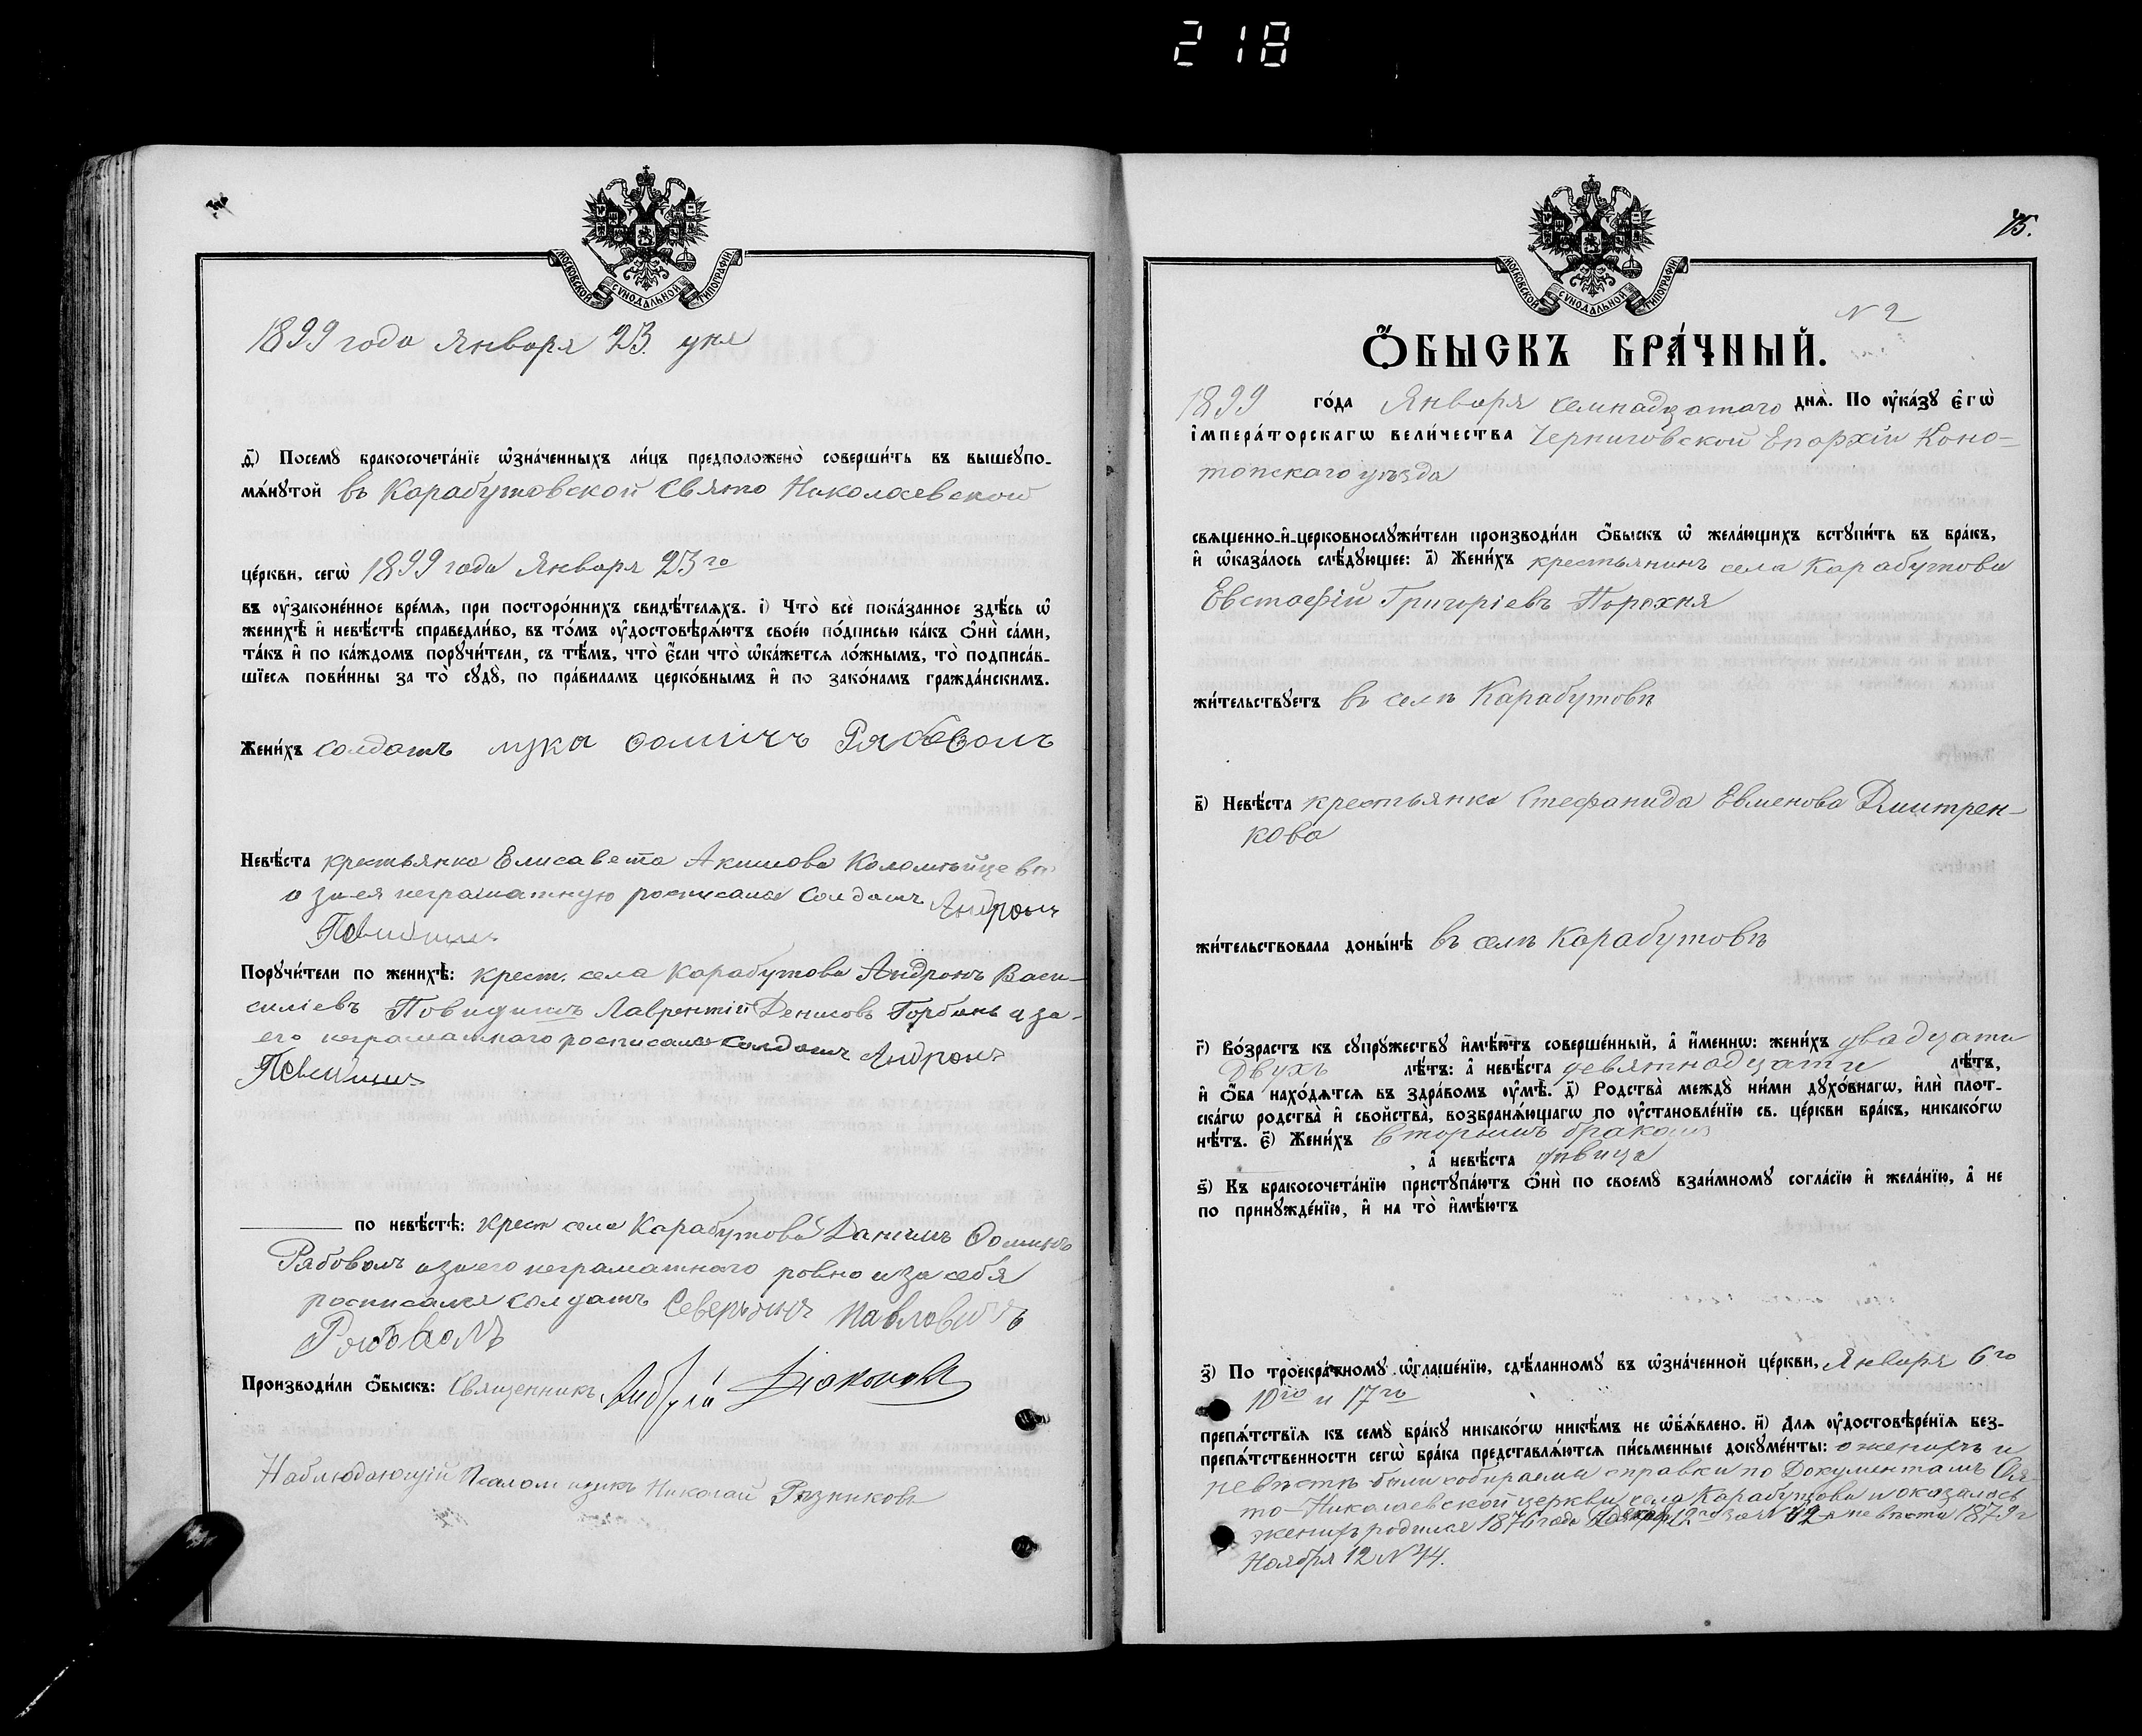 218
МОСКОВСКОЙ СѴНОДАЛЬНОЙ ТИПОГРАФІИ
1899 года Января 23. дня
Ѳ҃) Посемꙋ̀ бракосочета́нїе ѡ҆зна́ченныхъ ли́цъ предположено̀ соверши́ть въ вышеꙋпо-
мѧ́нꙋтой въ Карабутовской Свято Николаевской
це́ркви, сегѡ̀ 1899 года Января 23го
въ ᲂу҆законе́нное вре́мѧ, при посторо́ннихъ свидѣ́телѧхъ. і҃) Что̀ всѐ пока́занное здѣ́сь ѡ҆
женихѣ̀ и҆ невѣ́стѣ справедли́во, въ то́мъ ᲂу҆достовѣрѧ́ютъ свое́ю по́дписью ка́къ ѻ҆нѝ са́ми,
та́къ и҆ по ка́ждомъ порꙋчи́тели, съ тѣ́мъ, что̀ є҆́сли что̀ ѡ҆ка́жетсѧ ло́жнымъ, то̀ подписа́в-
шїесѧ пови́нны за то̀ сꙋдꙋ̀, по пра́виламъ церко́внымъ и҆ по зако́намъ гражда́нскимъ.
Жени́хъ солдатъ лука ѳомичъ Рябоволъ
Невѣ́ста крестьянка Елисавета Акимова Коломыйцева
а за ея неграматную росписался Солдатъ Андрон
Порꙋчи́тели по женихѣ̀: крест. села Карабутова Андронъ Васи-
силіевъ Лаврентій Денисовъ Горбань а за
его неграматнаго росписался солдатъ Андронъ
по невѣ́стѣ: крест села Карабутова Данiилъ Ѳоминъ
Рябоволъ а за его неграматнаго ровно и за себя
росписался солдатъ Северинъ Павловичъ
Рябоволъ
Производи́ли ѻ҆́быскъ: Священникъ Андрей
Наблюдающій Псаломщикъ Николай Рѣзниковъ
МОСКОВСКОЙ СѴНОДАЛЬНОЙ ТИПОГРАФІИ
75.
N 2
Ѻ҆́БЫСКЪ БРА́ЧНЫЙ.
1899 го́да Января семнадцатаго днѧ̀. По ᲂу҆ка́зꙋ є҆гѡ̀
і҆мпера́торскагѡ вели́чества Черниговской Епархіи Коно-
топскаго уѣзда
свѧщенно-и҆-церковнослꙋжи́тели производи́ли ѻ҆́быскъ ѡ҆ жела́ющихъ встꙋпи́ть въ бра́къ,
и҆ ѡ҆каза́лось слѣ́дꙋющее: а҃) Жени́хъ крестьянинъ села Карабутова
Евстафій Григоріевъ Порохня
жи́тельствꙋетъ въ селѣ Карабутовѣ
в҃) Невѣ́ста крестьянка Стефанида Евменова Дмитрен-
кова
жи́тельствовала доны́нѣ въ селѣ Карабутовѣ
г҃) Во́зрастъ къ сꙋпрꙋ́жествꙋ и҆мѣ́ютъ соверше́нный, а҆ и҆́меннѡ: жени́хъ двадцати
Двухъ лѣ́тъ: а҆ невѣ́ста девятнадцати лѣ́тъ,
и҆ ѻ҆́ба нахо́дѧтсѧ въ здра́вомъ ᲂу҆мѣ̀. д҃) Родства̀ междꙋ̀ ни́ми дꙋхо́внагѡ, и҆лѝ плот-
ска́гѡ родства̀ и҆ свойства̀, возбранѧ́ющагѡ по ᲂу҆становле́нїю св. це́ркви бра́къ, никако́гѡ
нѣ́тъ. є҃) Жени́хъ вторымъ бракомъ
, а҆ невѣ́ста дѣвица
ѕ҃) Къ бракосочета́нїю пристꙋпа́ютъ ѻ҆нѝ по своемꙋ̀ взаи́мномꙋ согла́сїю и҆ жела́нїю, а҆ не
по принꙋжде́нїю, и҆ на то̀ и҆мѣ́ютъ
з҃) По троекра́тномꙋ ѡ҆глаше́нїю, сдѣ́ланномꙋ въ ѡ҆зна́ченной це́ркви, Января 6го
10го и 17го
препѧ́тствїѧ къ семꙋ̀ бра́кꙋ никако́гѡ никѣ́мъ не ѡ҆б̾ѧ́влено. и҃) Длѧ ᲂу҆достовѣре́нїѧ без-
препѧ́тственности сегѡ̀ бра́ка представлѧ́ютсѧ пи́сьменные докꙋме́нты: о женихѣ и
невѣстѣ были собираемы справки по Документамъ Свя-
то-Николаевской церкви села Карабутова и оказалось
женихъ родился 1876 года 12го N 42 а невѣста 1879 г
Ноября 12 N 44.